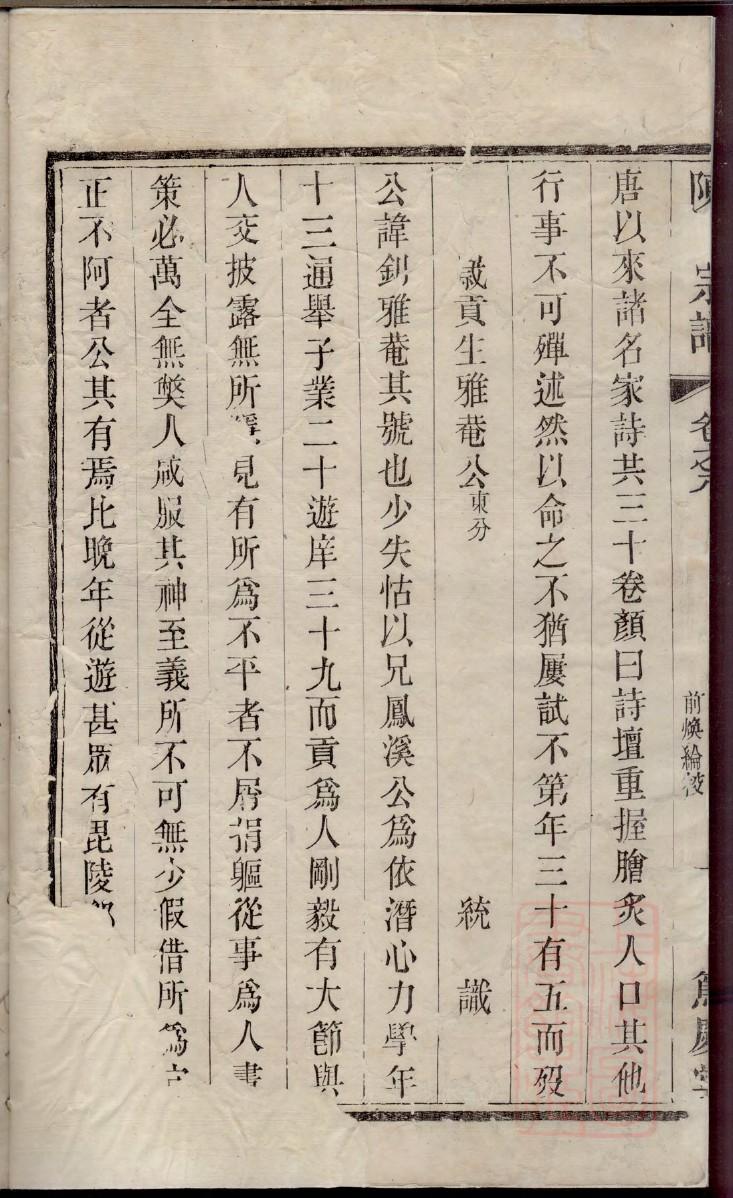 陳 宗譜 卷之 前煥綸梭
唐以來諸名家詩共三十卷顏曰詩壇重握膾炙人口其他
行事不可殫述然以命之不猶屢試不第年三十有五而歿
統識
歲貢生雅菴公東分
公諱釗雅菴其號也少失怙以兄鳳溪公為依潛心力學年
十三通舉子業二十遊庠三十九而貢為人剛毅有大節與
人交披露無所 見有所為不平者不屑捐軀從事為人畫
策必萬全無獘人咸服其神至義所不可無少假借所為
正不阿者公其有焉比晚年從遊甚眾有毘陵